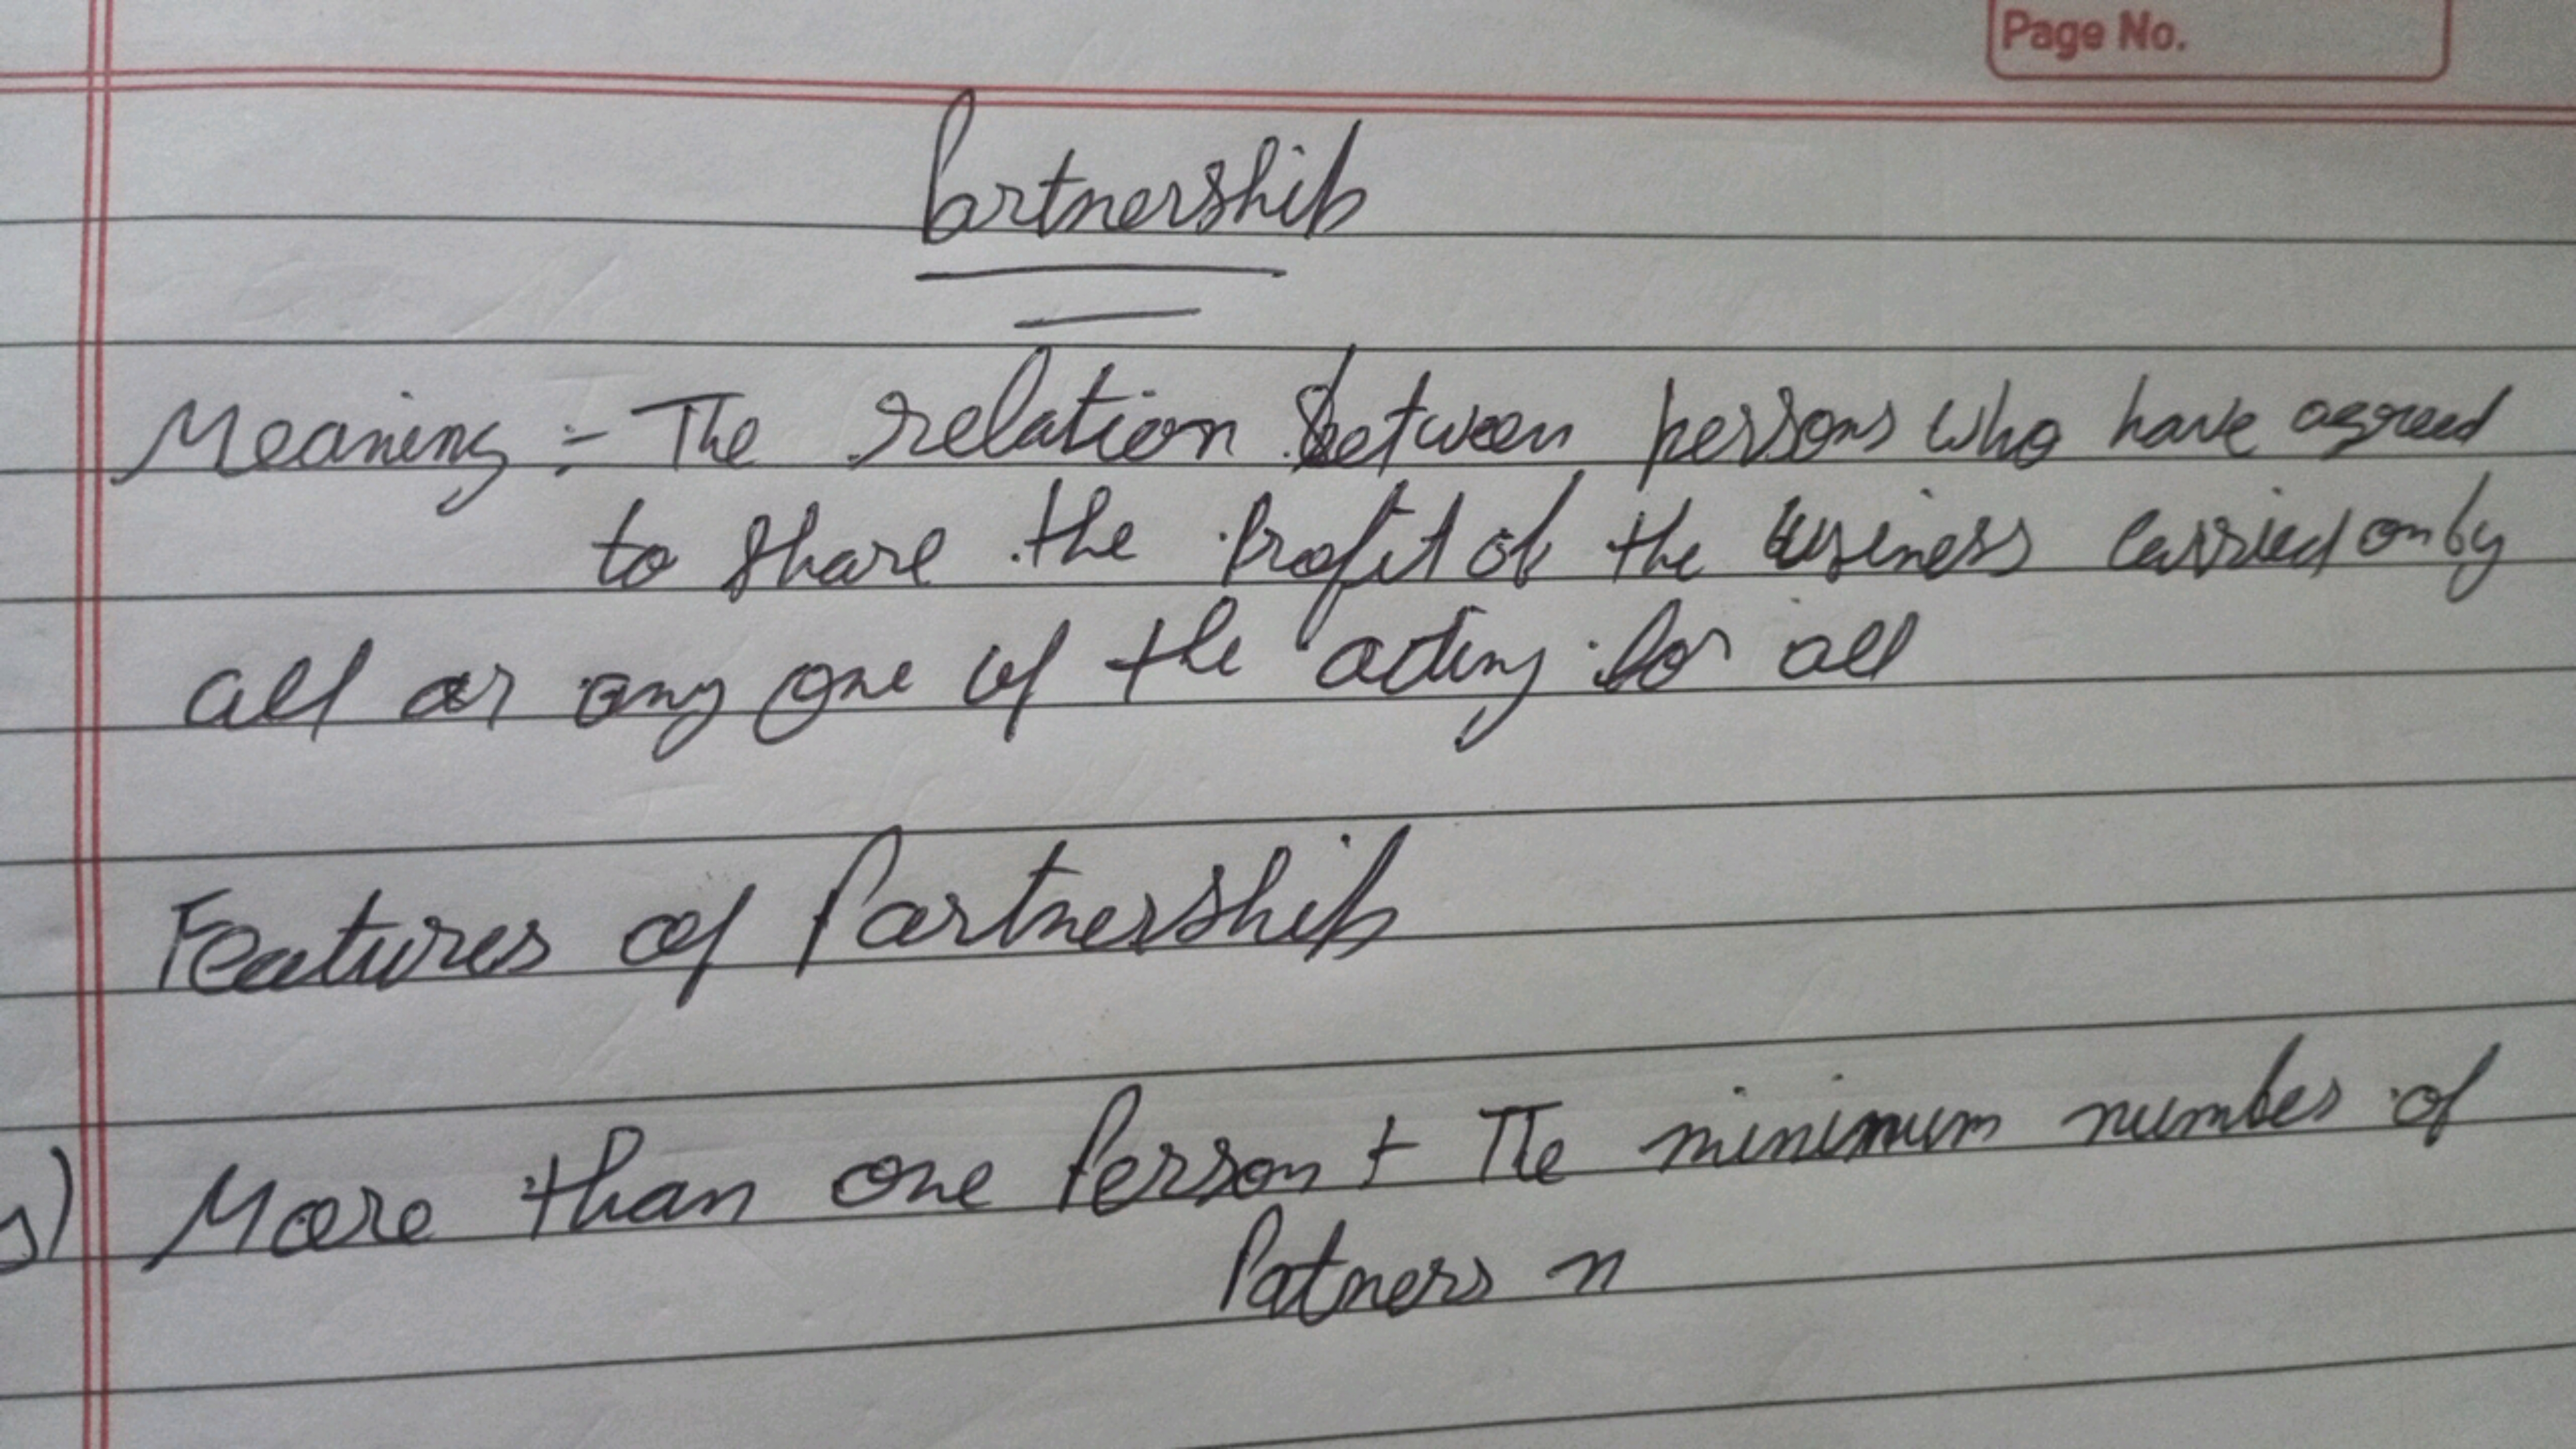 Page No.
Partnership
Meaning :- The relation between persons who have agreed
to share the Profit of the business carried on by
all or any one of the acting for all
Features of Partnership
More than one Person + The minimum number of
Patners n